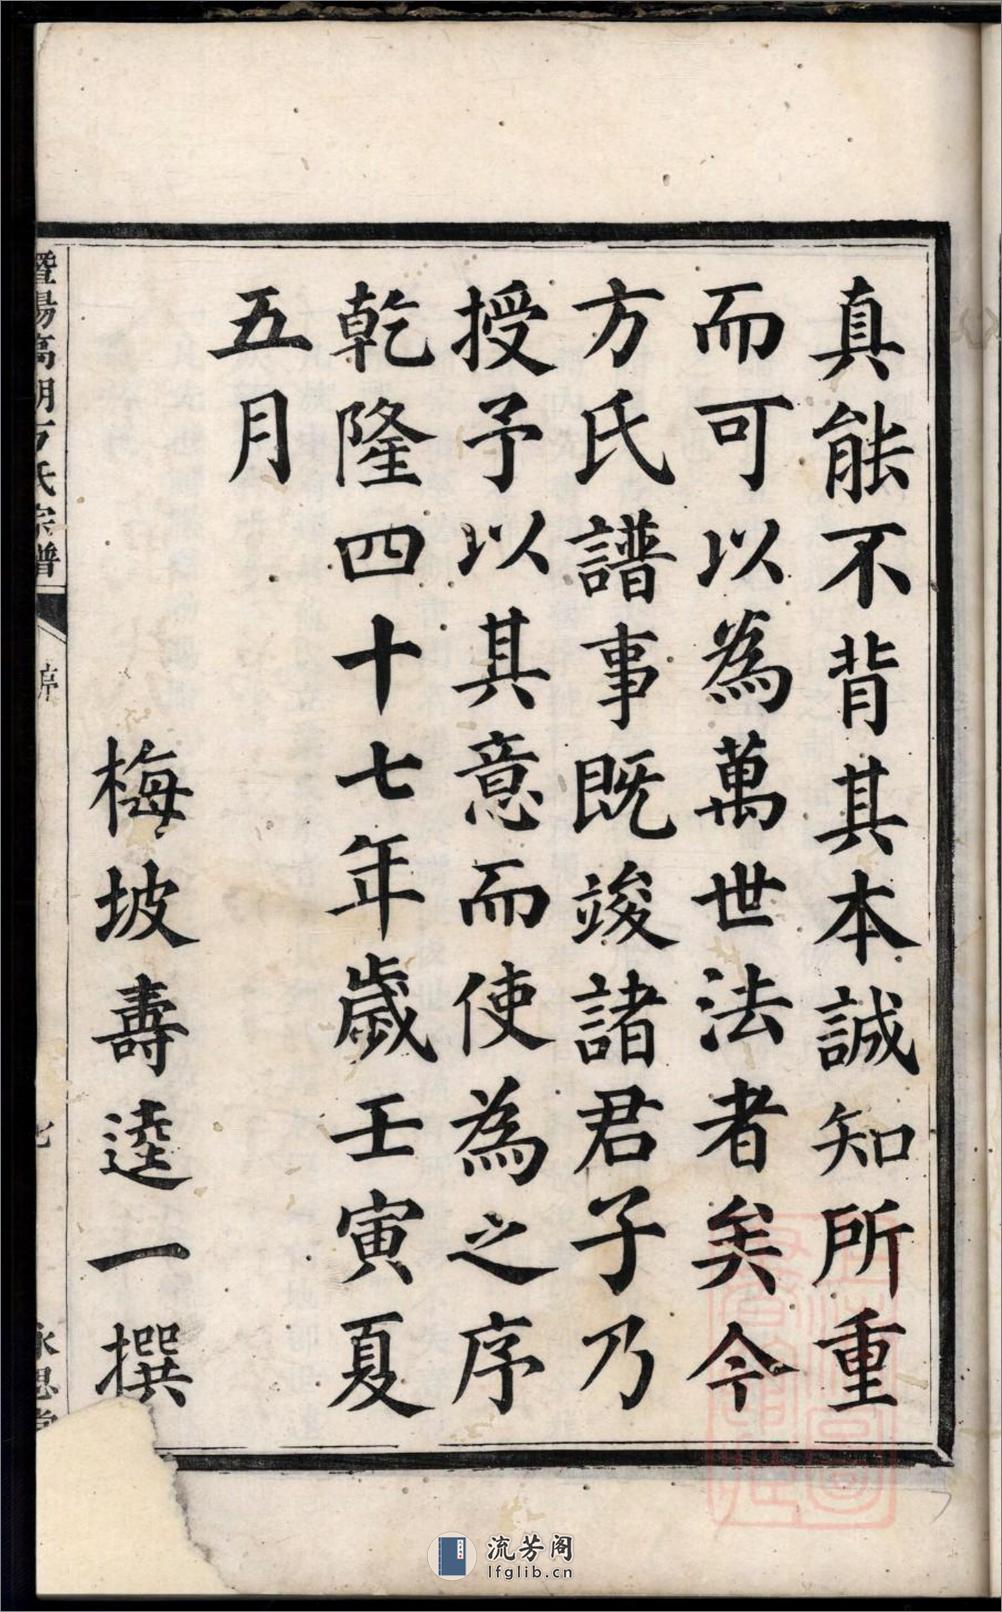 真能不背其本誠知所重
而可以為萬世法者矣今
方氏譜事既竣諸君子乃
授予以其意而使為之序
乾隆四十七年歲壬寅夏
五月
梅坡壽逵一撰
暨陽高湖方氏宗譜
序
永思堂
流芳阁
lfglib.cn